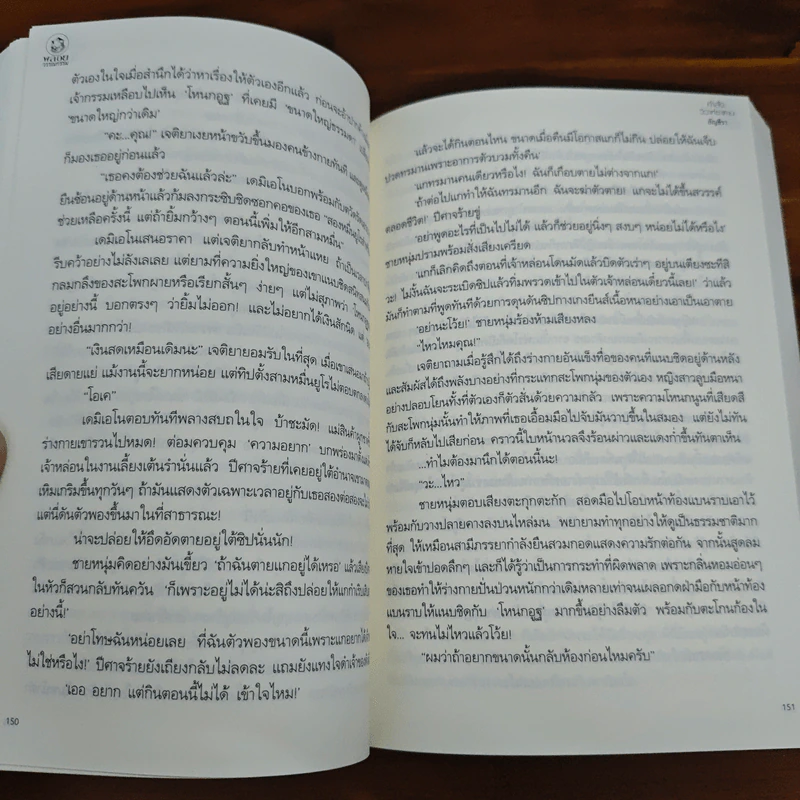 ตัวเองในใจเมื่อสำนึกได้ว่าหาเรื่องให้ตัวเองอีกแล้ว ก่อนจะ
เจ้ากรรมเหลือบไปเห็น ‘โหนกอูฐ’ ที่เคยมี ‘ขนาดใหญ่ธรรมดา’
‘ขนาดใหญ่กว่าเดิม’
“คะ...คุณ!” เจติยาเงยหน้าขวับขึ้นมองคนข้างกายทันที
ก็มองเธออยู่ก่อนแล้ว
“เธอคงต้องช่วยฉันแล้วล่ะ” เดมิเอโนบอกพร้อมกับ
ยืนซ้อนอยู่ด้านหน้าแล้วก้มลงกระซิบชิดซอกคอของเธอ “สองหมื่นยูโร
ช่วยเหลือครั้งนี้ แต่ถ้ายิ้มกว้างๆ ตอนนี้เพิ่มให้อีกสามหมื่น”
เดมิเอโนเสนอราคา แต่เจติยากลับทำหน้าแหย
รีบคว้าอย่างไม่ลังเลเลย แต่ยามที่ความยิ่งใหญ่ของเขาแนบชิด
กลมกลึงของสะโพกผายหรือเรียกสั้นๆ ง่ายๆ แต่ไม่สุภาพว่า
อยู่อย่างนี้ บอกตรงๆ ว่ายิ้มไม่ออก! และไม่อยากได้เงินสักนิด
อย่างอื่นมากกว่า!
“เงินสดเหมือนเดิมนะ” เจติยายอมรับในที่สุด เมื่อเขาเสนอมา
เสียดายแย่ แม้งานนี้จะยากหน่อย แต่ทิปตั้งสามหมื่นยูโรไม่
“โอเค”
เดมิเอโนตอบทันทีพลางสบถในใจ บ้าชะมัด! แม่สินค้า
ร่างกายเขารวนไปหมด! ต่อมควบคุม ‘ความอยาก’ บกพร่องมา
เจ้าหล่อนในงานเลี้ยงเต้นรำนั่นแล้ว ปีศาจร้ายที่เคยอยู่ใต้อำนาจ
เหิมเกริมขึ้นทุกวันๆ ถ้ามันแสดงตัวเฉพาะเวลาอยู่กับเธอสองต่อสอง
แต่นี่ดันตัวพองขึ้นมาในที่สาธารณะ!
น่าจะปล่อยให้อึดอัดตายอยู่ใต้ซิปนั่นนัก!
ชายหนุ่มคิดอย่างมันเขี้ยว ‘ถ้าฉันตายแกอยู่ได้เหรอ’
ในหัวก็สวนกลับทันควัน ‘ก็เพราะอยู่ไม่ได้น่ะสิถึงปล่อยให้แกกำเริบ
อย่างนี้!’
‘อย่าโทษฉันหน่อยเลย ที่ฉันตัวพองขนาดนี้เพราะแกอยากได้
ไม่ใช่หรือไง!’ ปีศาจร้ายยังเถียงกลับไม่ลดละ แถมยังแทงใจดำเจ้าของ
‘เออ อยาก แต่กินตอนนี้ไม่ได้ เข้าใจไหม!’
150
แล้วจะได้กินตอนไหน ขนาดเมื่อคืนมีโอกาสแกก็ไม่กิน ปล่อยให้ฉันเจ็บ
ปวดทรมานเพราะอาการตัวบวมทั้งคืน’
‘แกทรมานคนเดียวหรือไง! ฉันก็เกือบตายไม่ต่างจากแก!’
‘ถ้าต่อไปแกทำให้ฉันทรมานอีก ฉันจะฆ่าตัวตาย! แกจะไม่ได้ขึ้นสวรรค์
ตลอดชีวิต!’ ปีศาจร้ายขู่
‘อย่าพูดอะไรที่เป็นไปไม่ได้ แล้วก็ช่วยอยู่นิ่งๆ สงบๆ หน่อยไม่ได้หรือไง’
ชายหนุ่มปรามพร้อมสั่งเสียงเครียด
‘แกก็เลิกคิดถึงตอนที่เจ้าหล่อนโดนมัดแล้วบิดตัวเร่าๆ อยู่บนเตียงซะทีสิ
วะ! ไม่งั้นฉันจะระเบิดซิปแล้วทิ่มพรวดเข้าไปในตัวเจ้าหล่อนเดี๋ยวนี้เลย!’ ว่าแล้ว
มันก็ทำตามที่พูดทันทีด้วยการดุนดันซิปกางเกงยีนส์เนื้อหนาอย่างเอาเป็นเอาตาย
‘อย่านะโว้ย!’ ชายหนุ่มร้องห้ามเสียงหลง
“ไหวไหมคุณ!”
เจติยาถามเมื่อรู้สึกได้ถึงร่างกายอันแข็งทื่อของคนที่แนบชิดอยู่ด้านหลัง
และสัมผัสได้ถึงพลังบางอย่างที่กระแทกสะโพกนุ่มของตัวเอง หญิงสาวลูบมือหนา
อย่างปลอบโยนทั้งที่ตัวเองก็ตัวสั่นด้วยความกลัว เพราะความโหนกนูนที่เสียดสี
กับสะโพกนุ่มนั้นทำให้ภาพที่เธอเอื้อมมือไปจับมันวาบขึ้นในสมอง แต่ยังไม่ทัน
ได้จับก็หลับไปเสียก่อน คราวนี้ใบหน้านวลจึงร้อนผ่าวและแดงก่ำขึ้นทันตาเห็น
...ทำไมต้องมานึกได้ตอนนี้นะ!
“วะ...ไหว”
ชายหนุ่มตอบเสียงตะกุกตะกัก สอดมือไปโอบหน้าท้องแบนราบเอาไว้
พร้อมกับวางปลายคางลงบนไหล่มน พยายามทำทุกอย่างให้ดูเป็นธรรมชาติมาก
ที่สุด ให้เหมือนสามีภรรยากำลังยืนสวมกอดแสดงความรักต่อกัน จากนั้นสูดลม
หายใจเข้าปอดลึกๆ และก็ได้รู้ว่าเป็นการกระทำที่ผิดพลาด เพราะกลิ่นหอมอ่อนๆ
ของเธอทำให้ร่างกายปั่นป่วนหนักกว่าเดิมหลายเท่าจนเผลอกดฝ่ามือกับหน้าท้อง
แบนราบให้แนบชิดกับ ‘โหนกอูฐ’ มากขึ้นอย่างลืมตัว พร้อมกับตะโกนก้องใน
ใจ... จะทนไม่ไหวแล้วโว้ย!
“ผมว่าถ้าอยากขนาดนั้นกลับห้องก่อนไหมครับ”
151